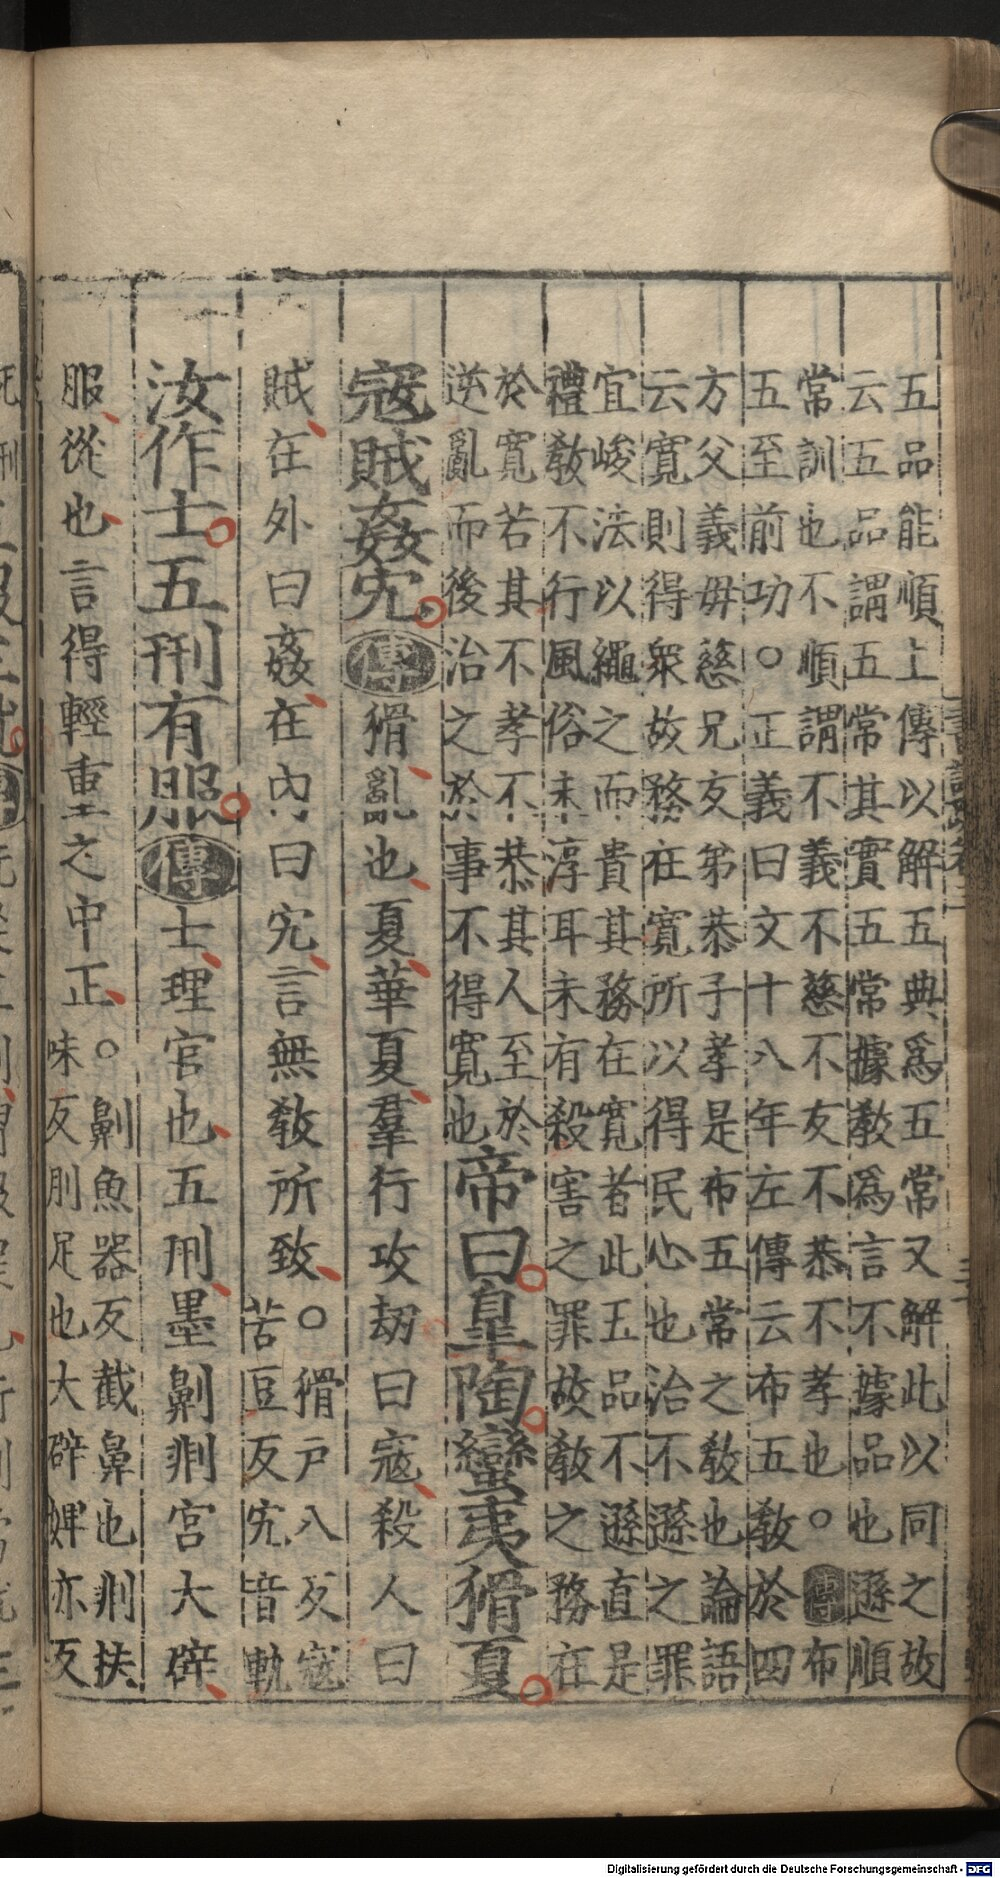 五品能順上傳以解五典爲五常又解此以同之故
云五品謂五常其實五常據教爲言不據品也遜順
常訓也不順謂不義不慈不友不恭不孝也○傳布
五至前功○正義曰文十八年左傳云布五敎於四
方父義毋慈兄友弟恭子孝是布五常之敎也論語
云寬則得衆故務在寬所以得民心也治不遜之罪
宜峻法以繩之而貴其務在寬者此五品不遜直是
禮敎不行風俗未淳耳未有殺害之罪故敎之務在
於寬若其不孝不恭其人至於
逆亂而後治之於事不得寬也
帝曰皐陶蠻夷猾夏
寇賊姦宄傳猾亂也夏華夏羣行攻劫曰寇殺人曰
賊在外曰姦在內曰宄言無敎所致○猾戶八反寇
苦豆反宄音軌
汝作士五刑有服傳士理官也五刑墨劓剕宮大辟
服從也言得輕重之中正○劓魚器反截鼻也剕扶
味反刖足也大辟婢亦反
Digitalisierung gefördert durch die Deutsche Forschungsgemeinschaft - DFG